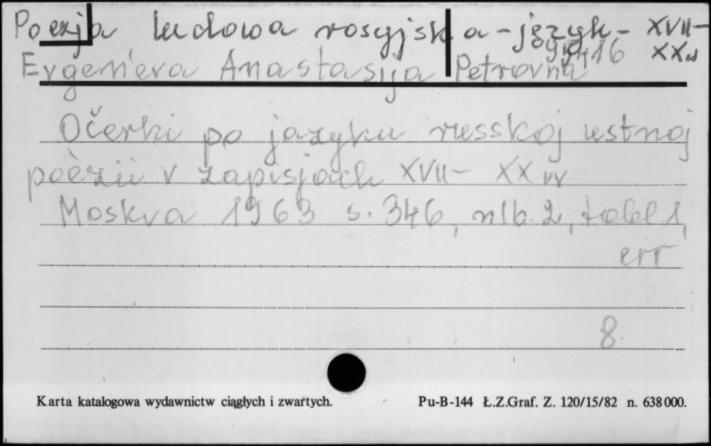 Poezja ludowa rosyjska - język - XVII-
XXw
Evgen'eva Anastasija Petrovna
Očerki po jazyku russkoj ustnoj
poèzii v zapisjach XVII- XX vv
Moskva 1963 s. 346, nlb. 2, tabl 1,
err
8
Karta katalogowa wydawnictw ciągłych i zwartych. Pu-B-144 Ł.Z.Graf. Z. 120/15/82 n. 638000.